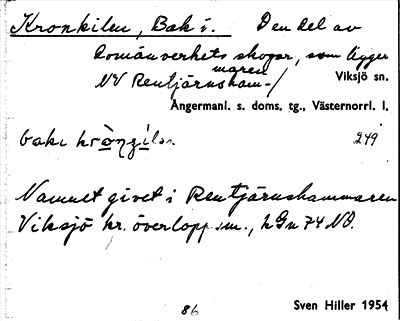 Kronkilen, Bak i. Den del av
Domänverkets skogar, som ligger
NV Rentjärnsham-/maren
Viksjö sn.
Ångermanl. s. doms. tg., Västernorrl. l.
baki 249
Namnet givet i Rentjärnshammaren
Viksjö kr. överlopp sm., hGn 74 NO.
86
Sven Hiller 1954